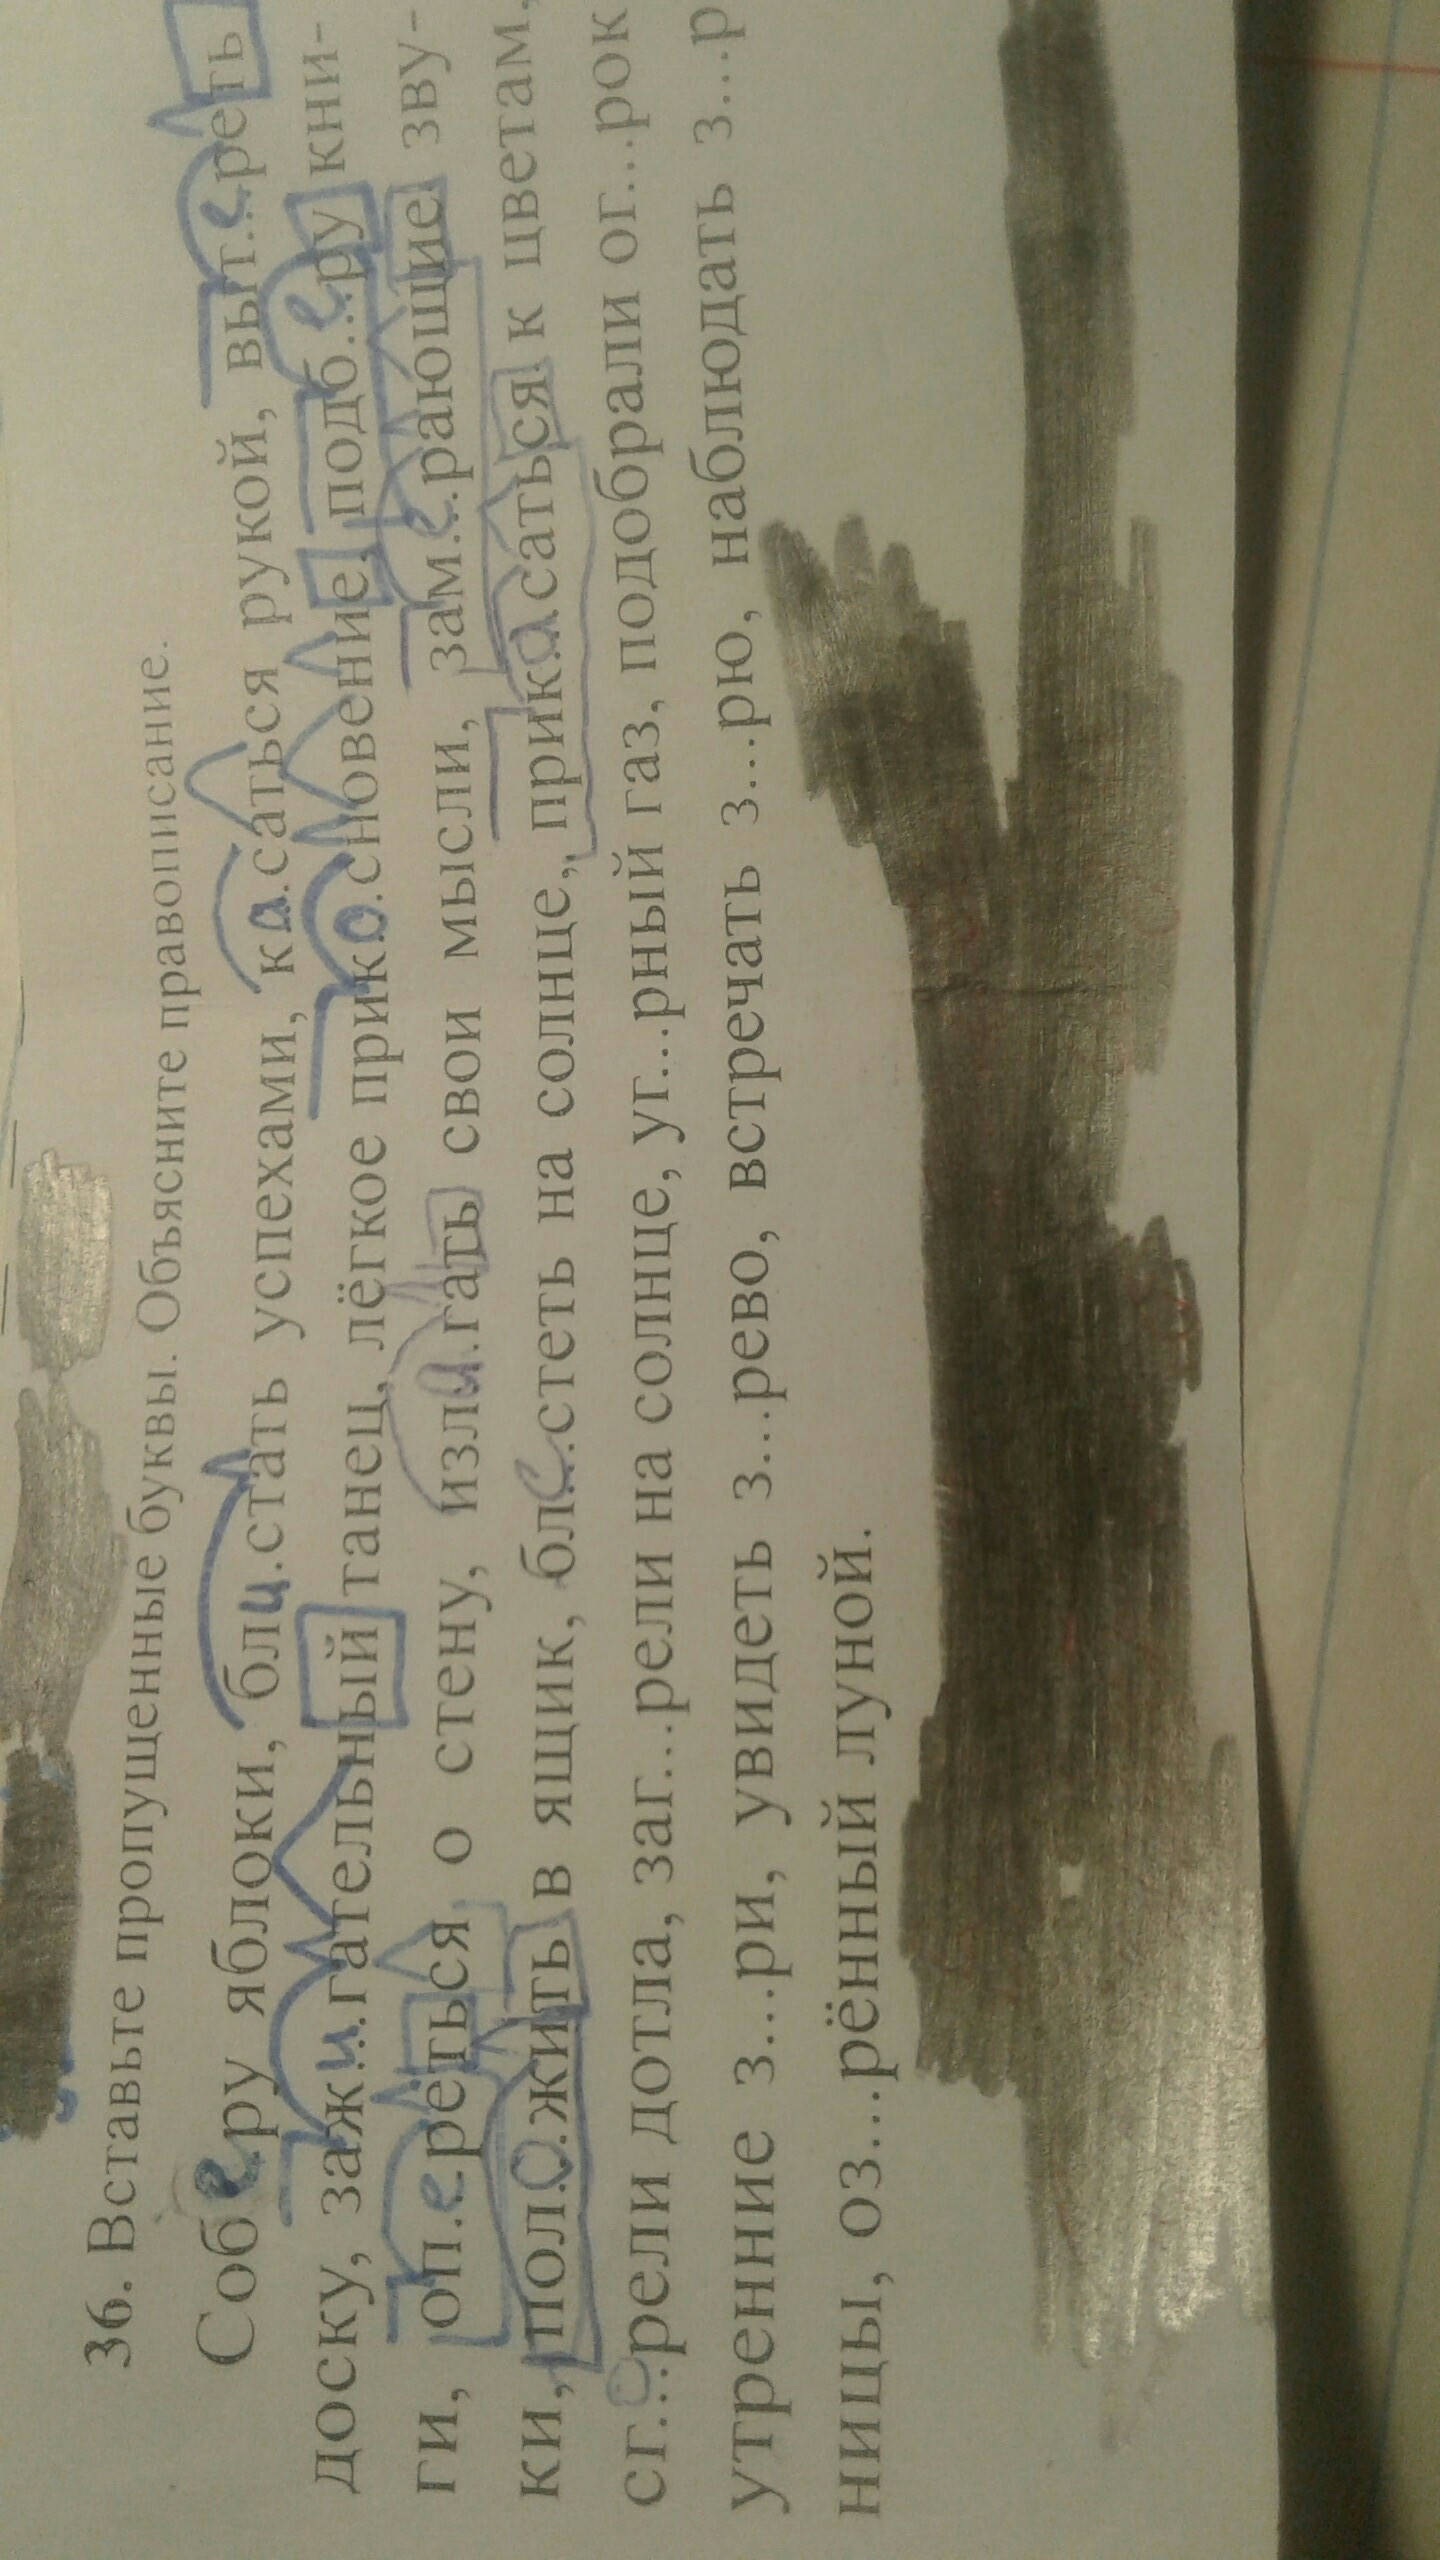 36. Вставьте пропущенные буквы. Объясните правописание.
Соберу яблоки, бли.стать успехами, ка.саться рукой, выт..ереть
доску, заж..игательный танец, лёгкое прико.сновение, подб..еру кни-
ги, оп.ереться о стену, изли.гать свои мысли, зам.ерающие зву-
ки, пол.ожить в ящик, бл..естеть на солнце, прика.саться к цветам,
сг..орели дотла, заг...рели на солнце, уг...рный газ, подобрали ог...рок
утренние з...ри, увидеть з...рево, встречать з...рю, наблюдать з...р
ницы, оз...рённый луной.